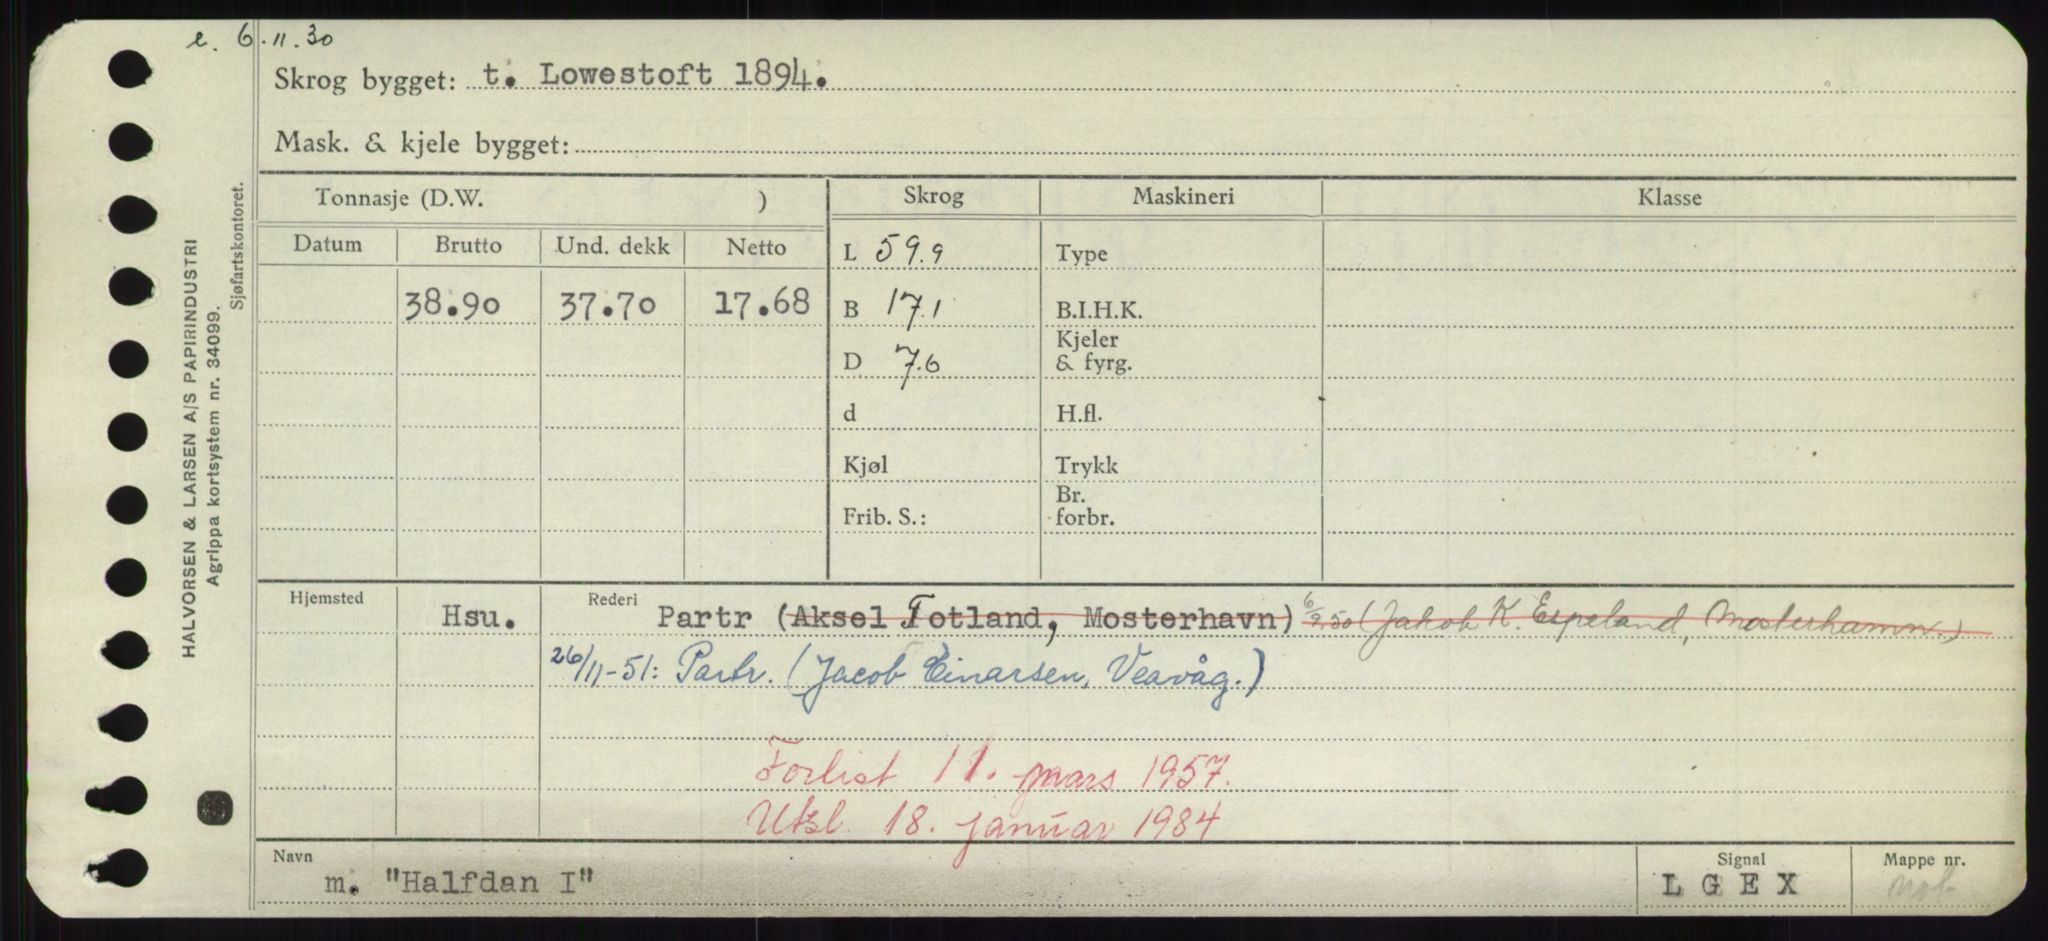 e. 6.11.30
Skrog bygget: t. Lowestoft 1894.
Mask. & kjele bygget:
Tonnasje (D.W. ) Skrog Maskineri Klasse
Datum Brutto Und. dekk Netto L 59.9 Type
38.90 37.70 17.68 B 17.1 B.I.H.K.
D 7.6 Kjeler & fyrg.
d H.fl.
Kjøl Trykk
Frib. S.: Br. forbr.
Hjemsted Hsu. Rederi Partr (Aksel Totland, Mosterhavn) 6/9.50 (Jakob K. Espeland, Mosterhamn.)
26/11-51: Partr. (Jacob Einarsen, Veavåg.)
Forlist 11. mars 1957.
Utsl. 18. januar 1984
Navn Signal Mappe nr.
m. "Halfdan I" LGEX
HALVORSEN & LARSEN A/S PAPIRINDUSTRI
Agrippa kortsystem nr. 34099.
Sjøfartskontoret.